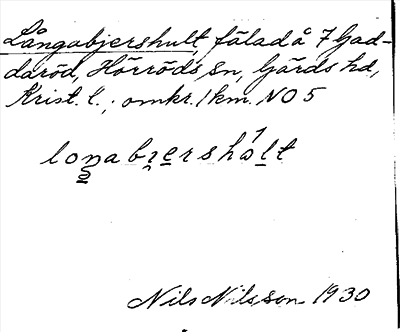 Långabjershult, fälad å 7 Gad-
daröd, Hörröds sn, Gärds hd,
Krist. l.; omkr. 1 km. NO 5
loŋabɪershalt
Nils Nilsson 1930